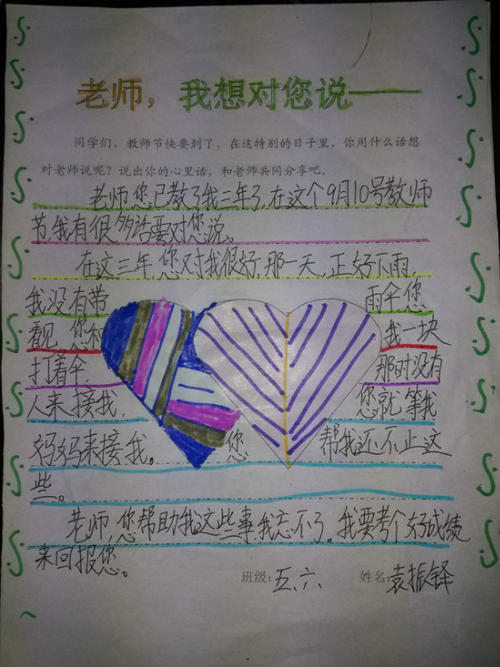 老师，我想对您说——
同学们，教师节快要到了，在这特别的日子里，你用什么话想
对老师说呢？说出你的心里话，和老师共同分享吧。
老师,您已教了我三年了,在这个9月10号教师
节,我有很多话要对您说。
在这三年,您对我很好,那一天,正好下雨,
我没有带 雨伞您
看见,您和 我一块
打着伞, 那时没有
人来接我, 您就等我
妈妈来接我。您 帮我还不止这
些。
老师,您帮助我这些事,我忘不了。我要考个好成绩
来回报您。
班级:五、六 姓名:袁振铎